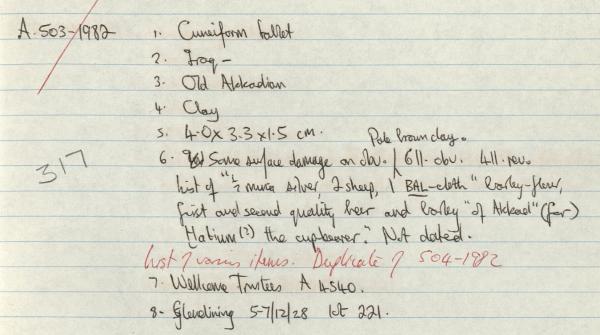 A. 503-1982 1. Cuneiform tablet
2. Iraq -
3. Old Akkadian
4. Clay
5. 4.0 x 3.3 x 1.5 cm. Pale brown clay.
317 6. Some surface damage on obv. 6 ll. obv. 4 ll. rev.
List of "½ mina silver, 2 sheep, 1 BAL-cloth" barley-flour,
first and second quality beer and barley "of Akkad" (for)
Hatium(?) the cupbearer." Not dated.
List of various items. Duplicate of 504-1982
7. Wellcome Trustees A 4540.
8. Glendining 5-7/12/28 lot 221.